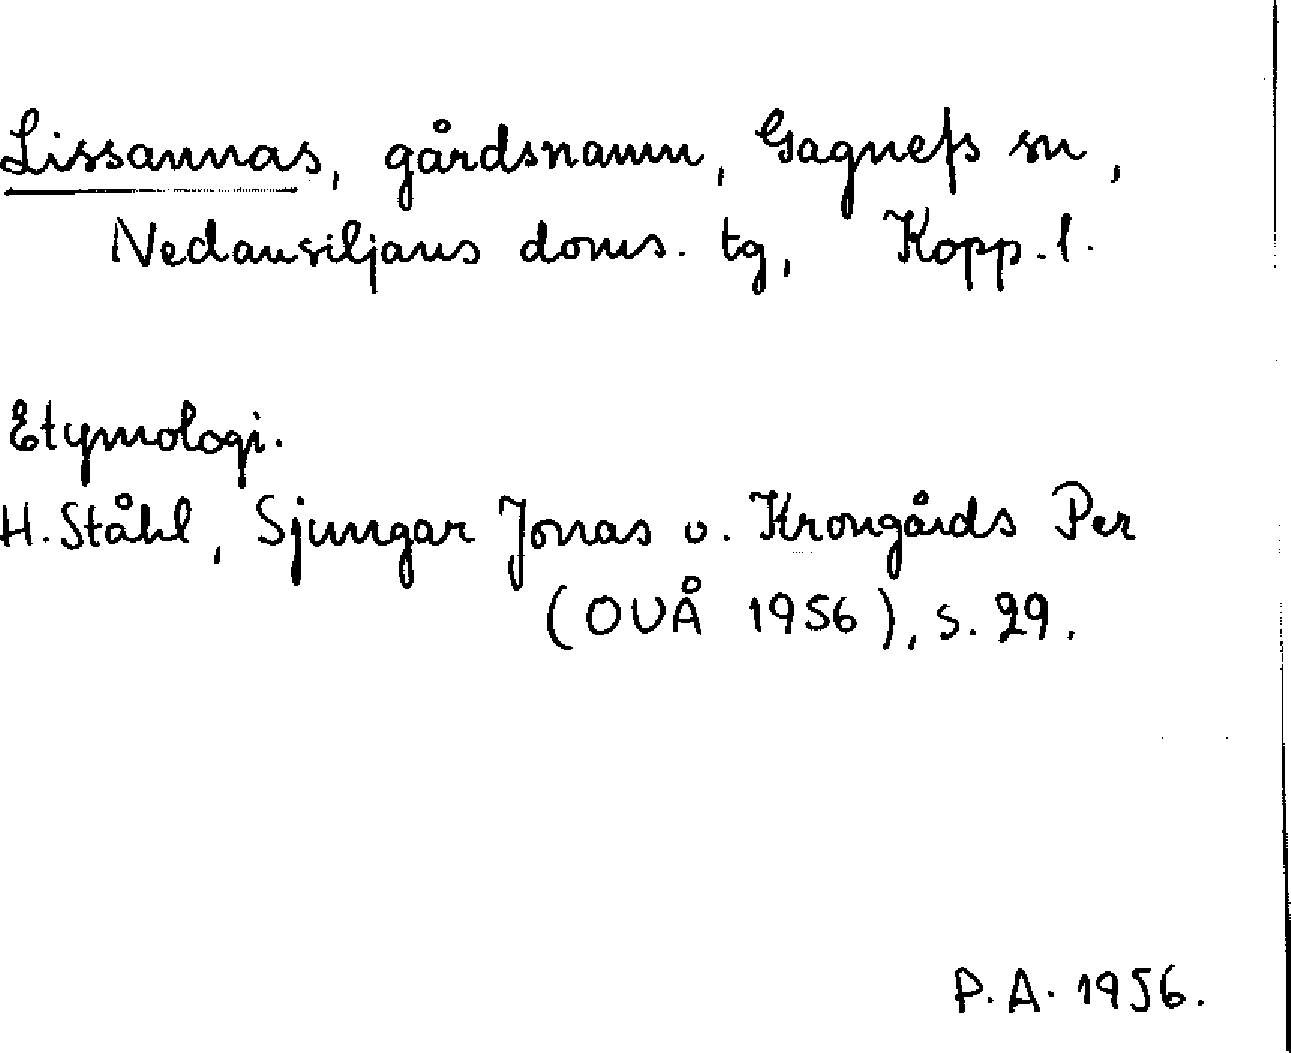 Lissannas, gårdsnamn, Gagnefs sn,
Nedansiljans doms. tg, Kopp. l.
Etymologi.
H. Ståhl, Sjungar Jonas o. Krongårds Per
(OUÅ 1956), s. 29.
P. A. 1956.